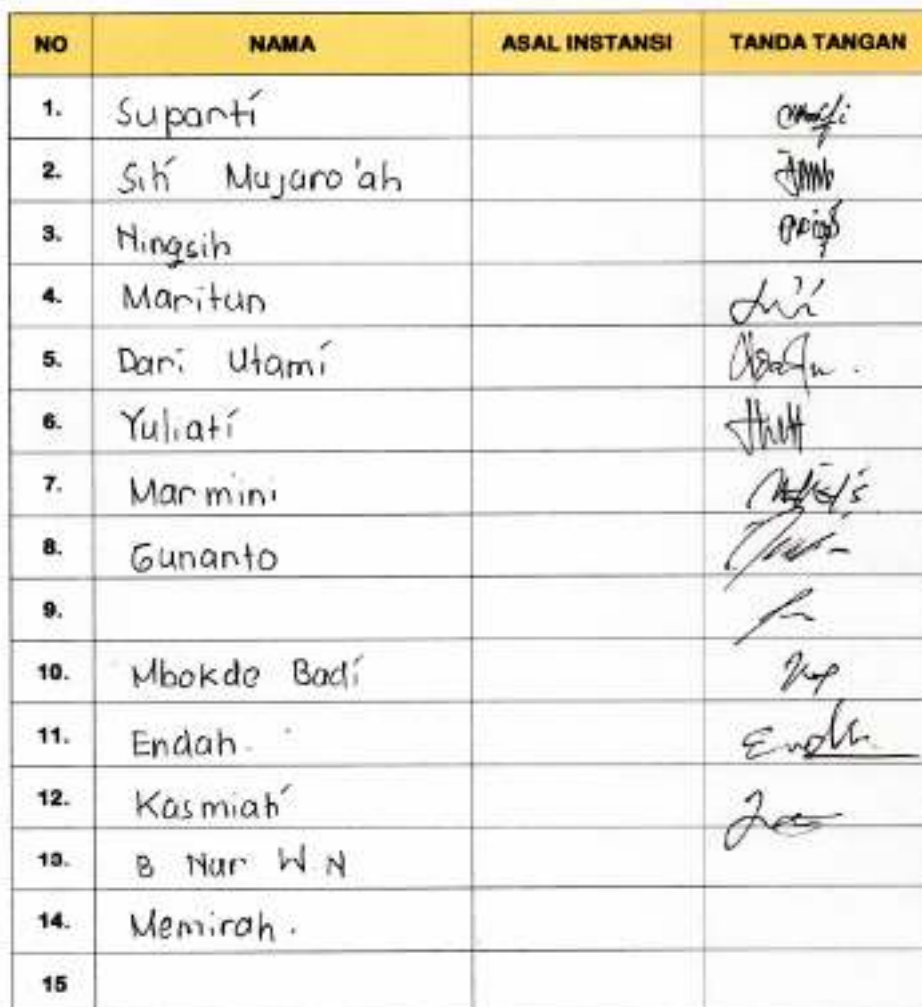 NO NAMA ASAL INSTANSI TANDA TANGAN
1. Suparti
2. Siti Mujaro'ah
3. Ningsih
4. Maritun
5. Dari Utami
6. Yuliati
7. Marmini
8. Gunanto
9.
10. Mbokde Badi
11. Endah.
12. Kasmiati
13. B Nur W.N
14. Memirah.
15